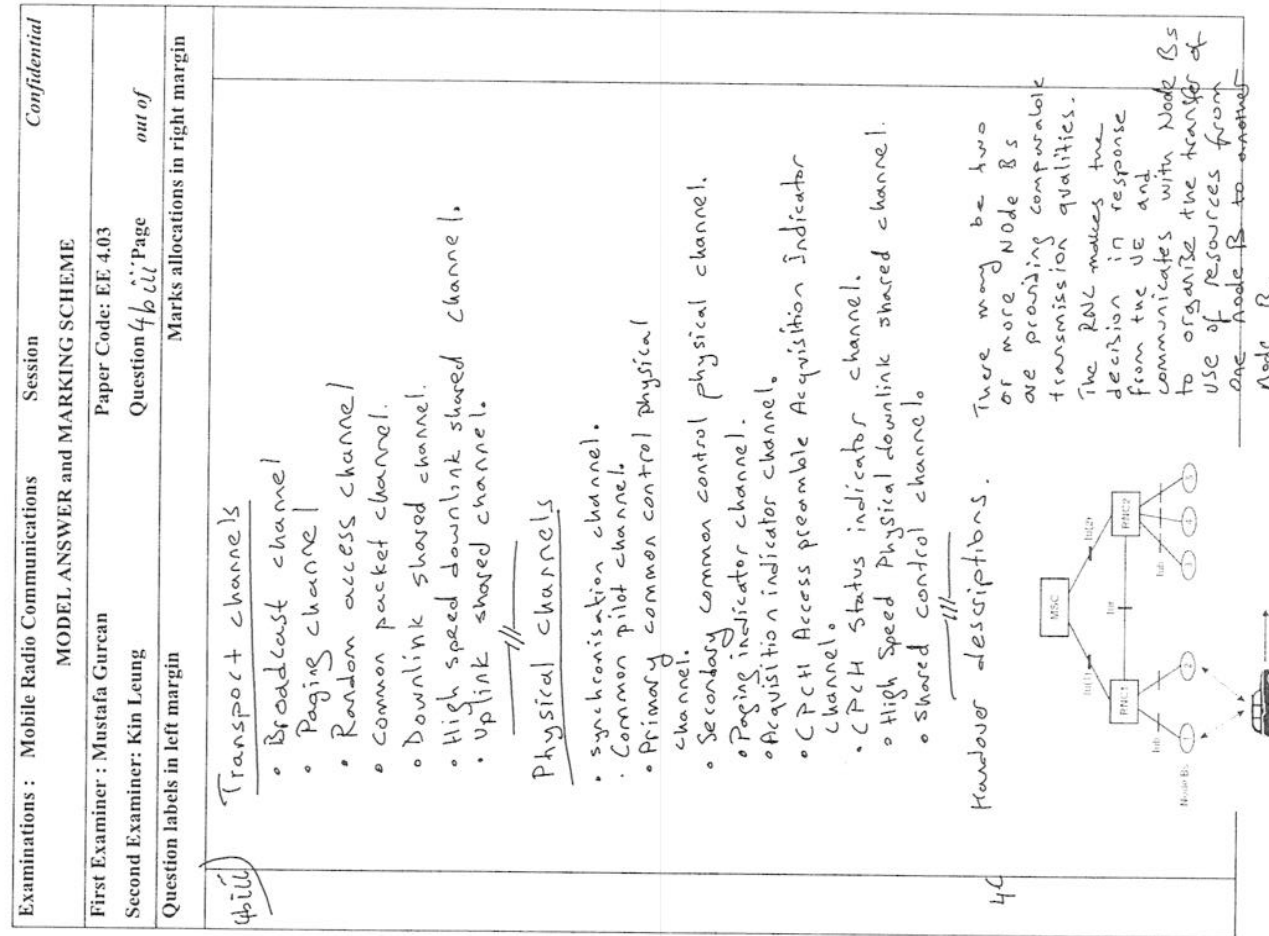 Examinations : Mobile Radio Communications Session Confidential
MODEL ANSWER and MARKING SCHEME
First Examiner : Mustafa Gurcan Paper Code: EE 4.03
Second Examiner: Kin Leung Question 4b iii Page out of
Question labels in left margin Marks allocations in right margin
4biii)
Transport channels
• Broadcast channel
• Paging channel
• Random access channel
• Common packet channel.
• Downlink shared channel.
• High speed downlink shared channel.
• uplink shared channel.
Physical channels
• synchronisation channel.
• Common pilot channel.
• Primary common control physical
channel.
• Secondary common control physical channel.
• Paging indicator channel.
• Acquisition indicator channel.
• CPCH Access preamble Acquisition Indicator
channel.
• CPCH Status indicator channel.
• High Speed Physical downlink shared channel.
• Shared control channel.
4c
Handover descriptions.
MSC
Iu(1)
Iu(2)
RNC1
Iur
RNC2
Iub
Iub
Node Bs
1
2
3
4
5
There may be two
or more Node Bs
are providing comparable
transmission qualities.
The RNC makes the
decision in response
from the UE and
communicates with Node Bs
to organise the transfer of
use of resources from
one node B to another
node B